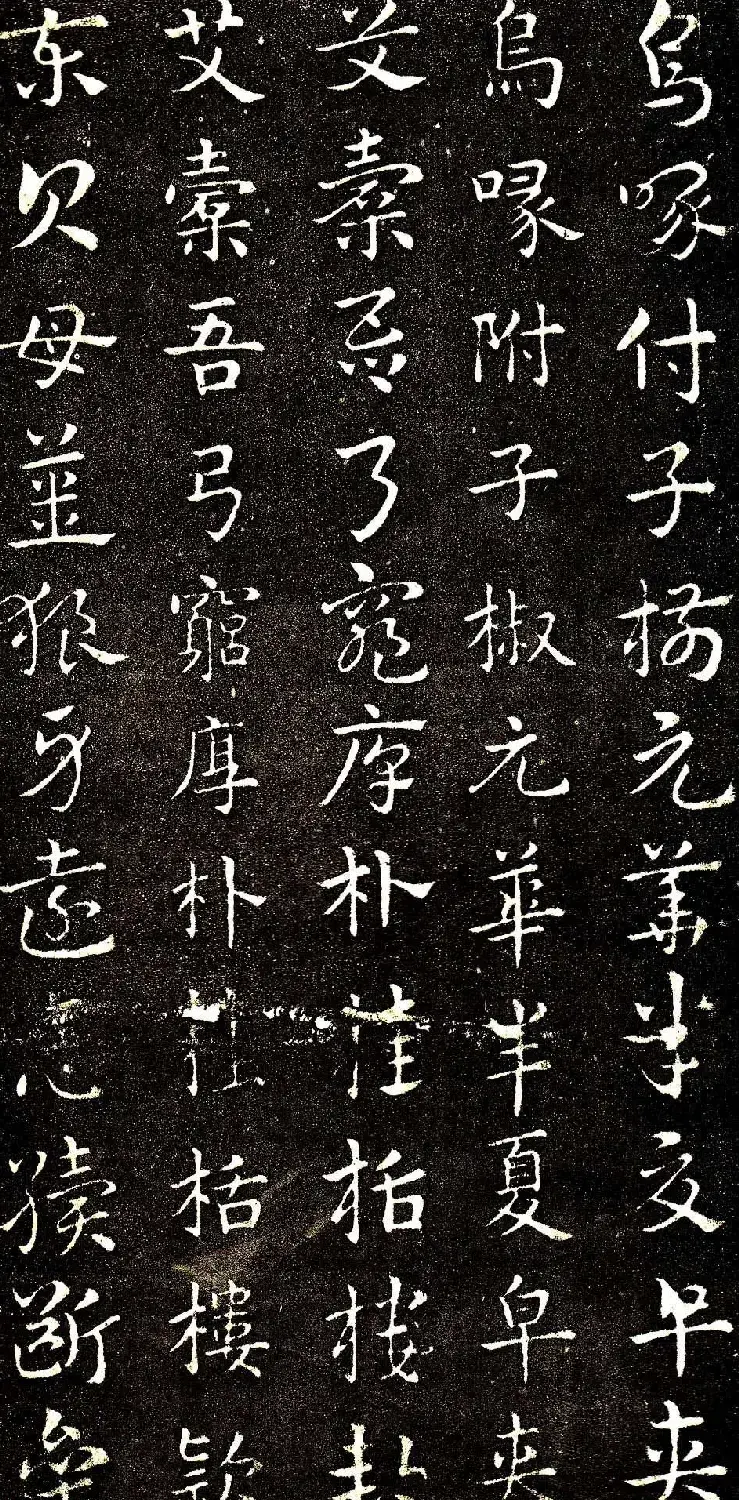 烏喙付子椒元華半夏皁莢
烏喙附子椒元華半夏皁夾
艾橐吾弓窮厚朴桂栝樓款
艾橐吾弓窮厚朴桂栝樓款
東貝母薑狼牙遠志續斷參